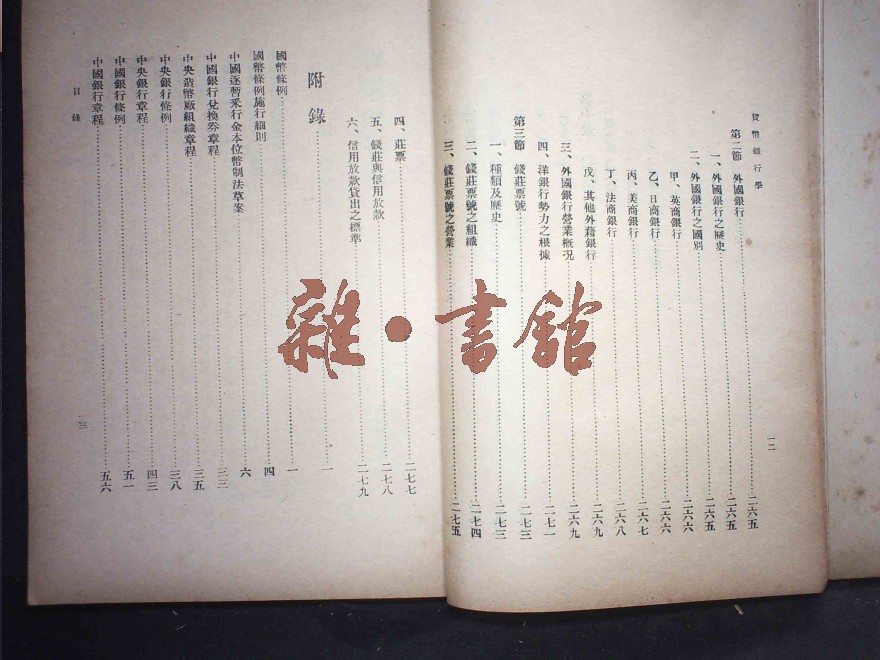 貨幣銀行學
第二節 外國銀行 二六五
一、外國銀行之歷史 二六五
二、外國銀行之國別 二六五
甲、英商銀行 二六六
乙、日商銀行 二六六
丙、美商銀行 二六七
丁、法商銀行 二六八
戊、其他外籍銀行 二六九
三、外國銀行營業概況 二六九
四、洋銀行勢力之根據 二七一
第三節 錢莊票號 二七三
一、種類及歷史 二七三
二、錢莊票號之組織 二七四
三、錢莊票號之營業 二七五
一二
四、莊票 二七七
五、錢莊與信用放款 二七八
六、信用放款貸出之標準 二七九
附錄 一
國幣條例 一
國幣條例施行細則 四
中國逐漸釆行金本位幣制法草案 六
中國銀行兌換券章程 三三
中央造幣廠組織章程 三五
中央銀行條例 三八
中央銀行章程 四三
中國銀行條例 五一
中國銀行章程 五六
目錄
一三
雜·書館